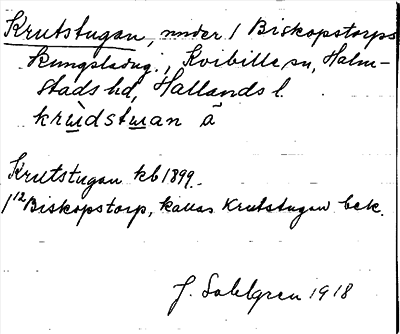 Krutstugan, under 1 Biskopstorps
kungsladug., Kvibille sn, Halm-
stads hd, Hallands l.
krùdstu̲an å
Krutstugan kb 1899.
1¹² Biskopstorp, kallas Krutstugan bek.
J. Sahlgren 1918